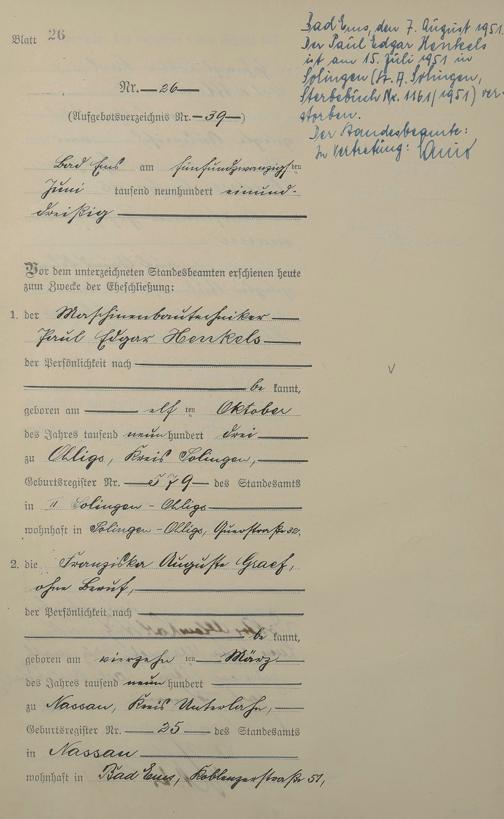 Blatt 26
Bad Ems, den 7. August 1951.
Der Paul Edgar Henkels
ist am 15. Juli 1951 in
Solingen (St. A. Solingen,
Sterbebuch Nr. 1161/1951) ver-
storben.
Der Standesbeamte:
In Vertretung:
Nr. 26
(Aufgebotsverzeichnis Nr. 39)
Bad Ems am fünfundzwanzigsten
Juni tausend neunhundert einund-
dreißig
Vor dem unterzeichneten Standesbeamten erschienen heute
zum Zwecke der Eheschließung:
1. der Maschinenbautechniker
Paul Edgar Henkels
der Persönlichkeit nach
be kannt,
geboren am elf ten Oktober
des Jahres tausend neunhundert drei
zu Ohligs, Kreis Solingen,
Geburtsregister Nr. 579 des Standesamts
in II Solingen-Ohligs
wohnhaft in Solingen-Ohligs, Querstraße 32,
2. die Franziska Auguste Graef,
ohne Beruf,
der Persönlichkeit nach
be kannt,
geboren am vierzehn ten März
des Jahres tausend neunhundert
zu Nassau, Kreis Unterlahn,
Geburtsregister Nr. 25 des Standesamts
in Nassau
wohnhaft in Bad Ems, Koblenzerstraße 51,